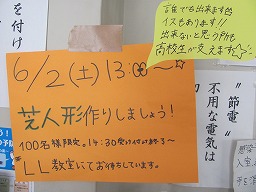 誰でも出来ます
イスもあります!!
出来ないと思う所も
高校生が支えます
6/2(土)13:00〜
芝人形作りしましょう!
100名様限定。14:30受け付け終了〜
LL教室にてお待ちしています。
を付け
"節電"
不用な電気は